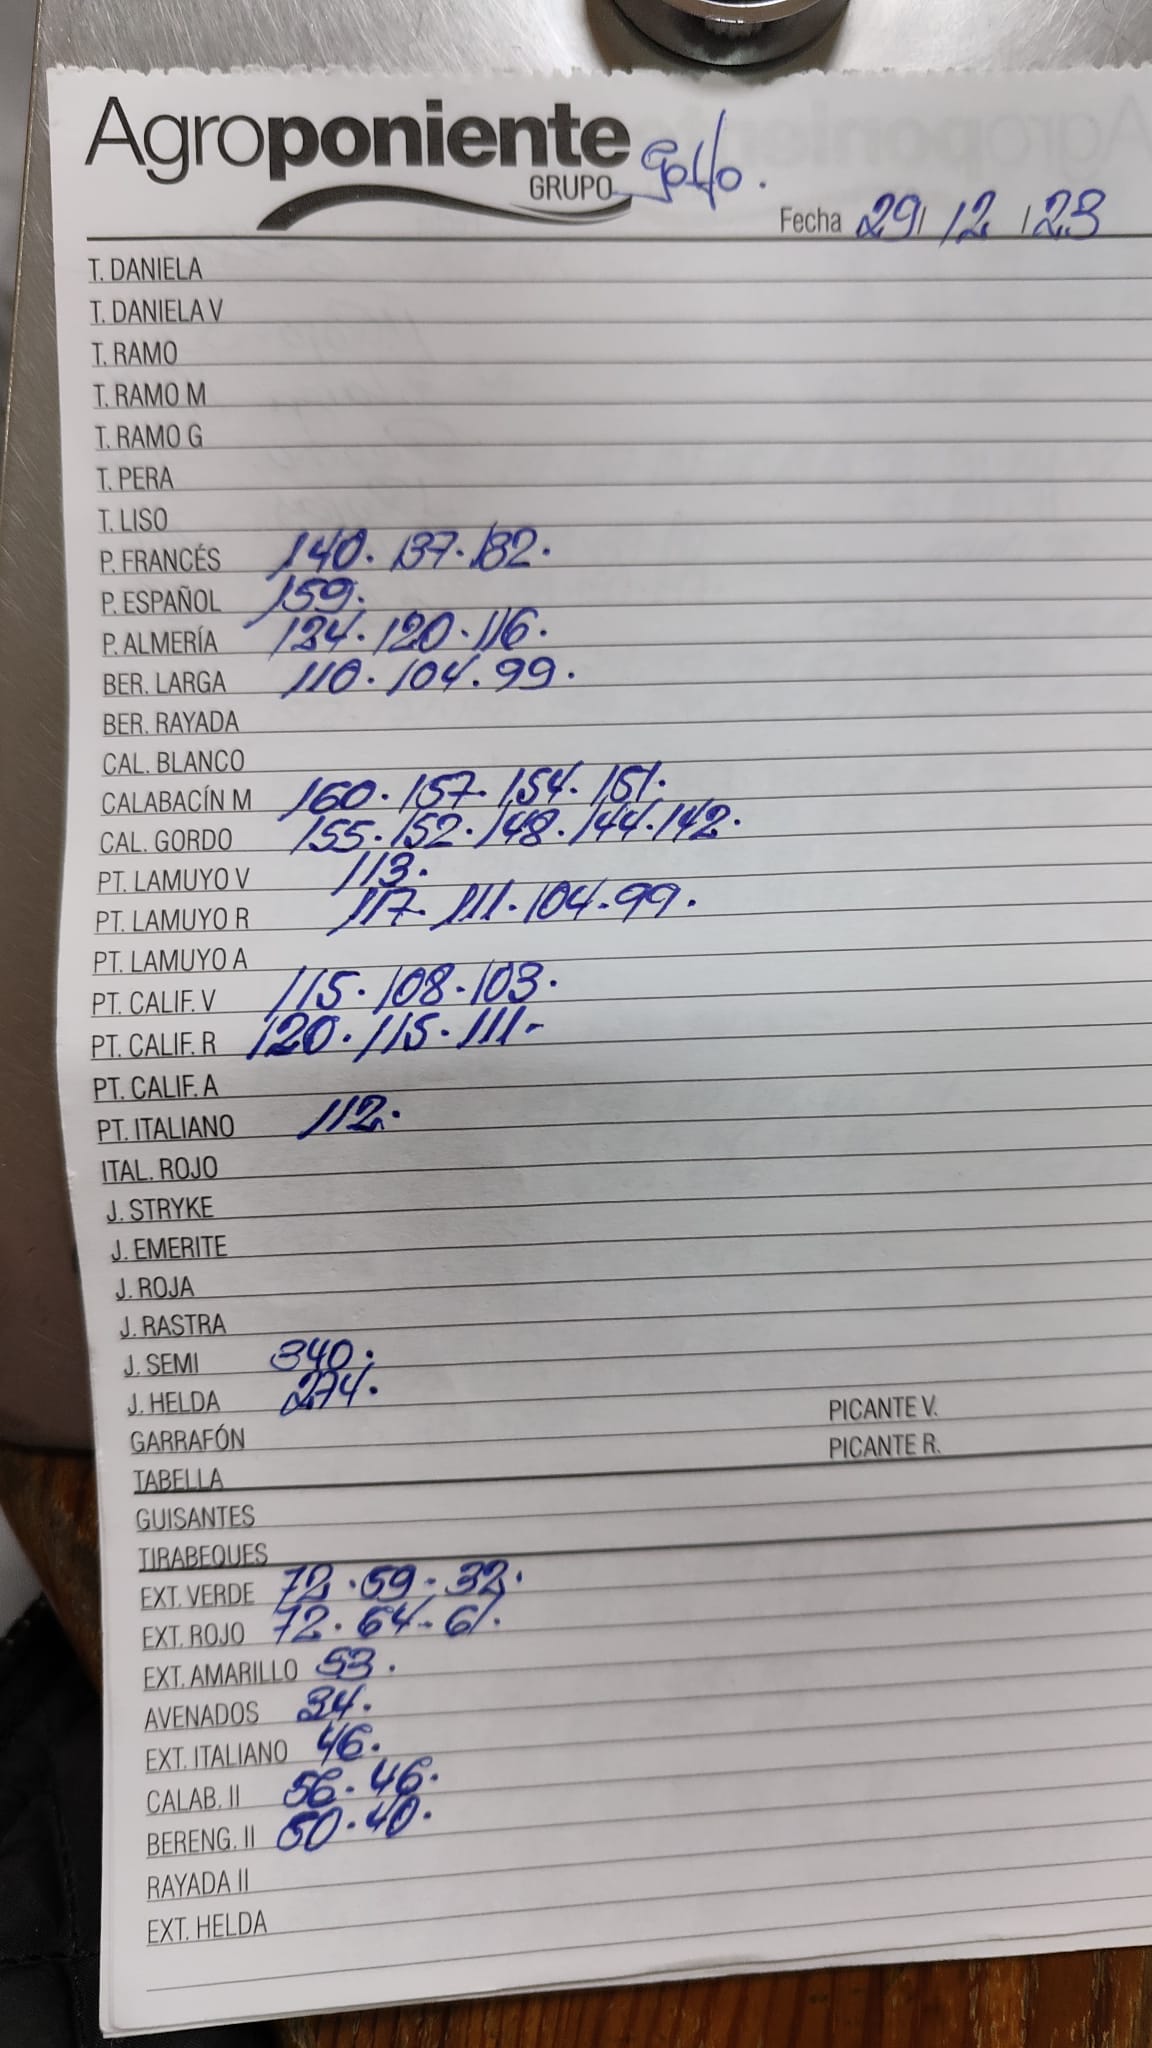 Agroponiente Golfo.
GRUPO
Fecha 29/12/23
T. DANIELA
T. DANIELA V
T. RAMO
T. RAMO M
T. RAMO G
T. PERA
T. LISO
P. FRANCÉS 140. 137. 132.
P. ESPAÑOL 159.
P. ALMERÍA 124. 120. 116.
BER. LARGA 110. 104. 99.
BER. RAYADA
CAL. BLANCO
CALABACÍN M 160. 157. 154. 151.
CAL. GORDO 155. 152. 148. 144. 142.
PT. LAMUYO V 113.
PT. LAMUYO R 117. 111. 104. 99.
PT. LAMUYO A
PT. CALIF. V 115. 108. 103.
PT. CALIF. R 120. 115. 111-
PT. CALIF. A
PT. ITALIANO 112.
ITAL. ROJO
J. STRYKE
J. EMERITE
J. ROJA
J. RASTRA
J. SEMI 340.
J. HELDA 274.
GARRAFÓN PICANTE V.
TABELLA PICANTE R.
GUISANTES
TIRABEQUES
EXT. VERDE 72. 59. 32.
EXT. ROJO 72. 64. 61.
EXT. AMARILLO 53.
AVENADOS 34.
EXT. ITALIANO 46.
CALAB. II 56. 46.
BERENG. II 50. 40.
RAYADA II
EXT. HELDA